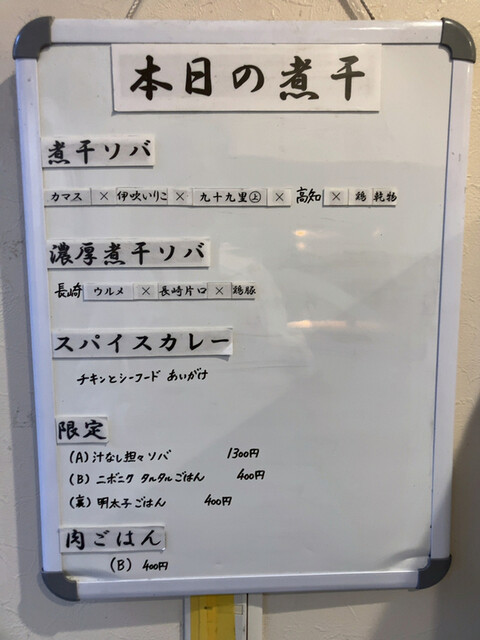 本日の煮干
煮干ソバ
カマス × 伊吹いりこ × 九十九里㊤ × 高知 × 鶏 乾物
濃厚煮干ソバ
長崎 ウルメ × 長崎片口 × 鶏豚
スパイスカレー
チキンとシーフード あいがけ
限定
(A) 汁なし担々ソバ 1300円
(B) ニボニク タルタルごはん 400円
(裏) 明太子ごはん 400円
肉ごはん
(B) 400円